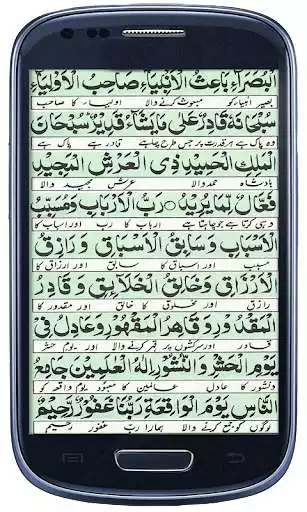 الْبُصَرَآءِ بَاعِثَ الْاَنْبِيَآءِ صَاحِبَ الْاَوْلِيَآءِ
بصیر انبیاء کو مبعوث کرنے والا اولیاء کا صاحب
سُبْحَانَهٗ قَادِرٌ عَلٰى مَا يَشَآءُ قَدِيْرٌ سُبْحَانَ
وہ پاک ہے ہر قدرت پر جس طرح چاہے قادر ہے پاک ہے
الْمَلِكِ الْحَمِيْدِ ذِى الْعَرْشِ الْمَجِيْدِ
بادشاہ حمد والا عرش مجید والا
فَعَّالٌ لِّمَا يُرِيْدُ رَبُّ الْاَرْبَابِ وَمُسَبِّبُ
وہی کرتا ہے جو چاہتا ہے ارباب کا رب اور اسباب کا
الْاَسْبَابِ وَسَابِقُ الْاَسْبَاقِ وَرَازِقُ
مسبب اور اسباق کا سابق اور ارزاق کا
الْاَرْزَاقِ وَخَالِقُ الْخَلَآئِقِ وَقَادِرُ
رازق اور مخلوق کا خالق اور مقدور کا
الْمَقْدُوْرِ وَقَاهِرُ الْمَقْهُوْرِ وَعَادِلٌ فِىْ
قادر اور سرکشوں پر قہر کرنے والا اور یوم حشر
يَوْمِ الْحَشْرِ وَالنُّشُوْرِ اِلٰهُ الْعٰلَمِيْنَ جَامِعُ
ونشور کا عادل عالمین کا معبود یوم واقعہ کو
النَّاسِ يَوْمَ الْوَاقِعَةِ رَبُّنَا غَفُوْرٌ رَّحِيْمٌ
لوگوں کو جمع کرنے والا ہمارا رب غفور رحیم